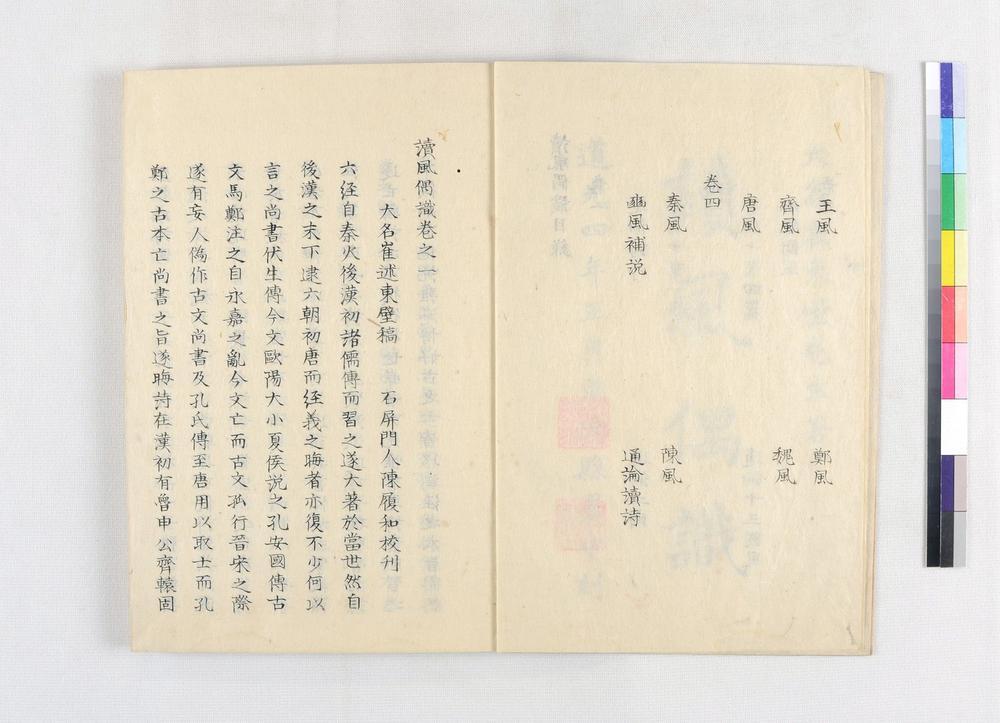 王風 鄭風
齊風 魏風
唐風
卷四
秦風 陳風
豳風補説 通論讀詩
讀風偶識卷之一
大名崔述東壁稿 石屏門人陳履和校刊
六经自秦火後漢初諸儒傳而習之遂大著於當世然自
後漢之末下逮六朝初唐而经義之晦者亦復不少何以
言之尚書伏生傳今文歐陽大小夏侯説之孔安國傳古
文馬鄭注之自永嘉之亂今文亡而古文孤行晉宋之際
遂有妄人偽作古文尚書及孔氏傳至唐用以取士而孔
鄭之古本亡尚書之旨遂晦詩在漢初有魯申公齊轅固